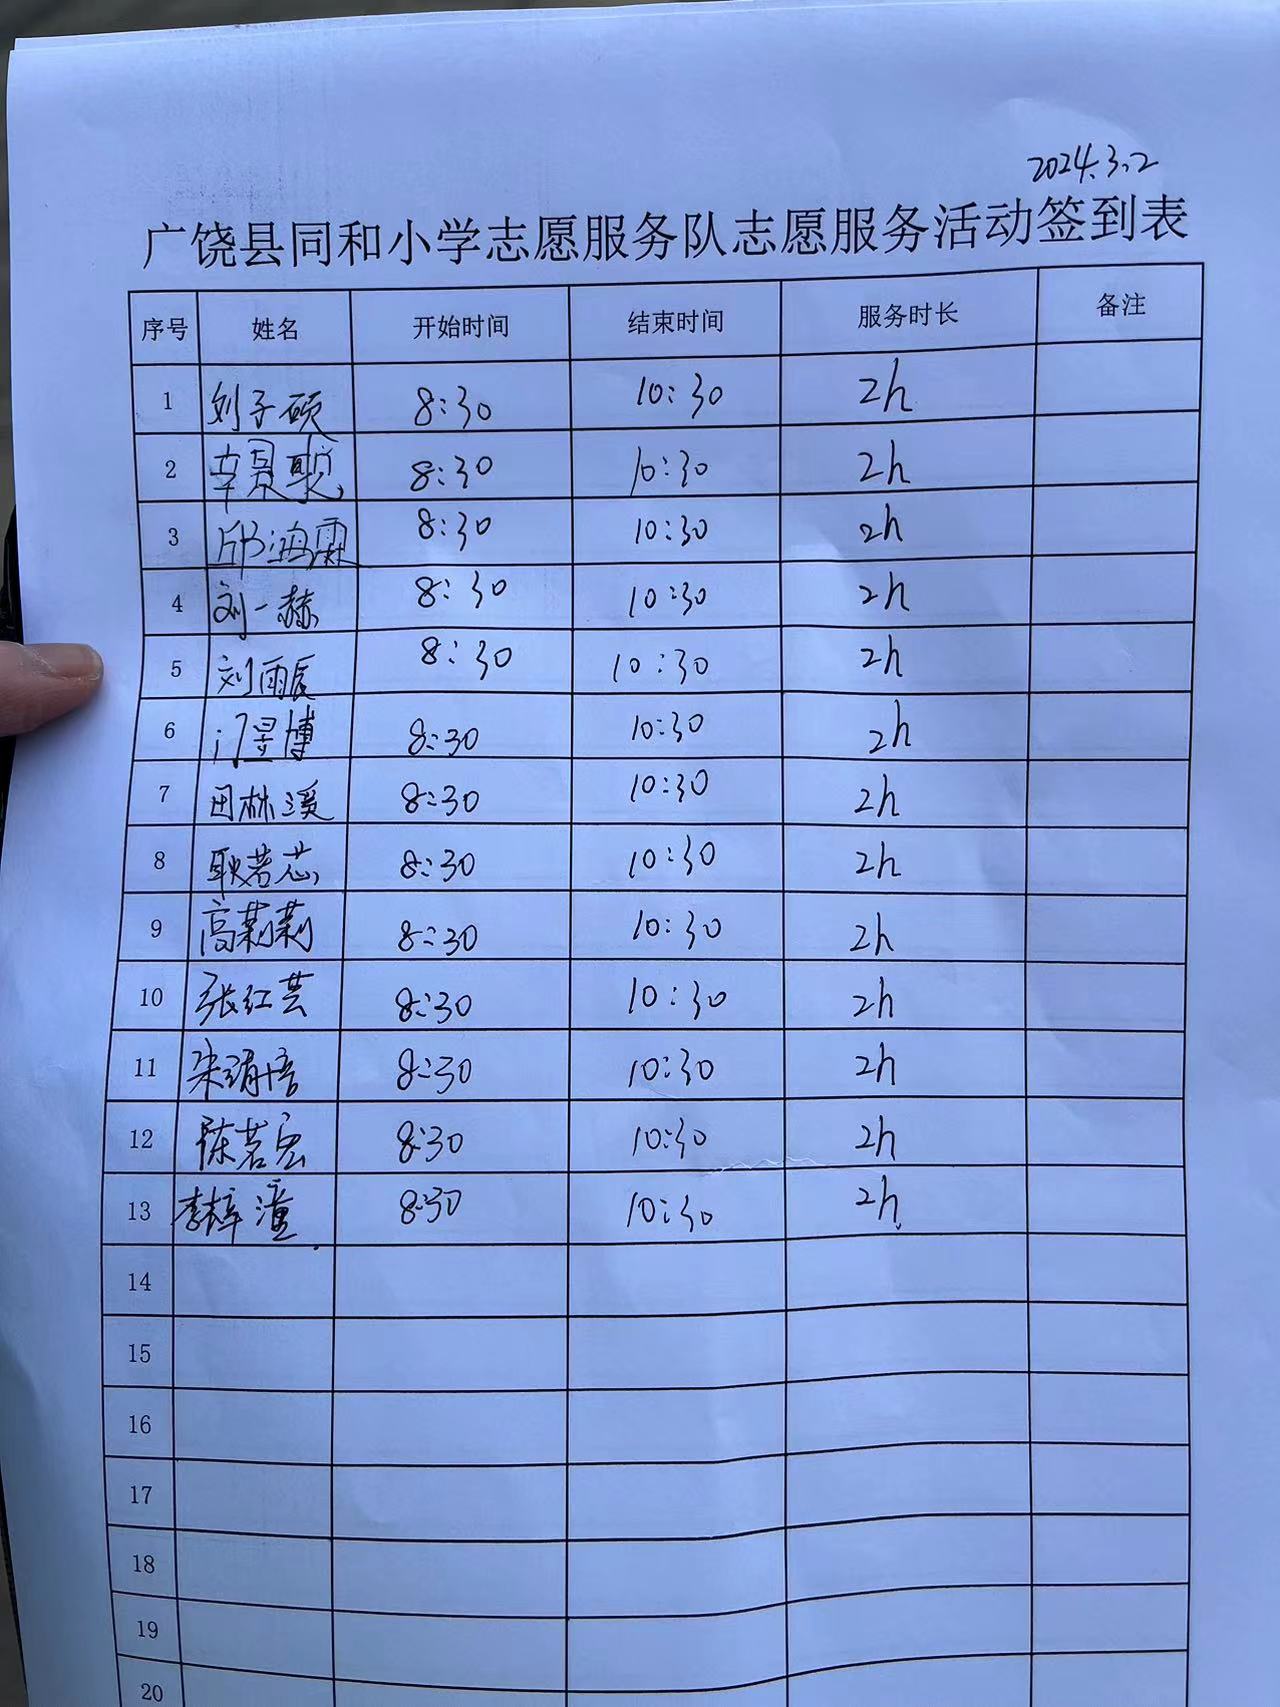 2024.3.2
广饶县同和小学志愿服务队志愿服务活动签到表
序号 姓名 开始时间 结束时间 服务时长 备注
1 刘子硕 8:30 10:30 2h
2 辛景聪 8:30 10:30 2h
3 邱鸿霖 8:30 10:30 2h
4 刘一赫 8:30 10:30 2h
5 刘雨辰 8:30 10:30 2h
6 门昱博 8:30 10:30 2h
7 田林溪 8:30 10:30 2h
8 耿若芯 8:30 10:30 2h
9 高莉莉 8:30 10:30 2h
10 张红芸 8:30 10:30 2h
11 8:30 10:30 2h
12 陈茗宏 8:30 10:30 2h
13 李梓潼 8:30 10:30 2h
14
15
16
17
18
19
20